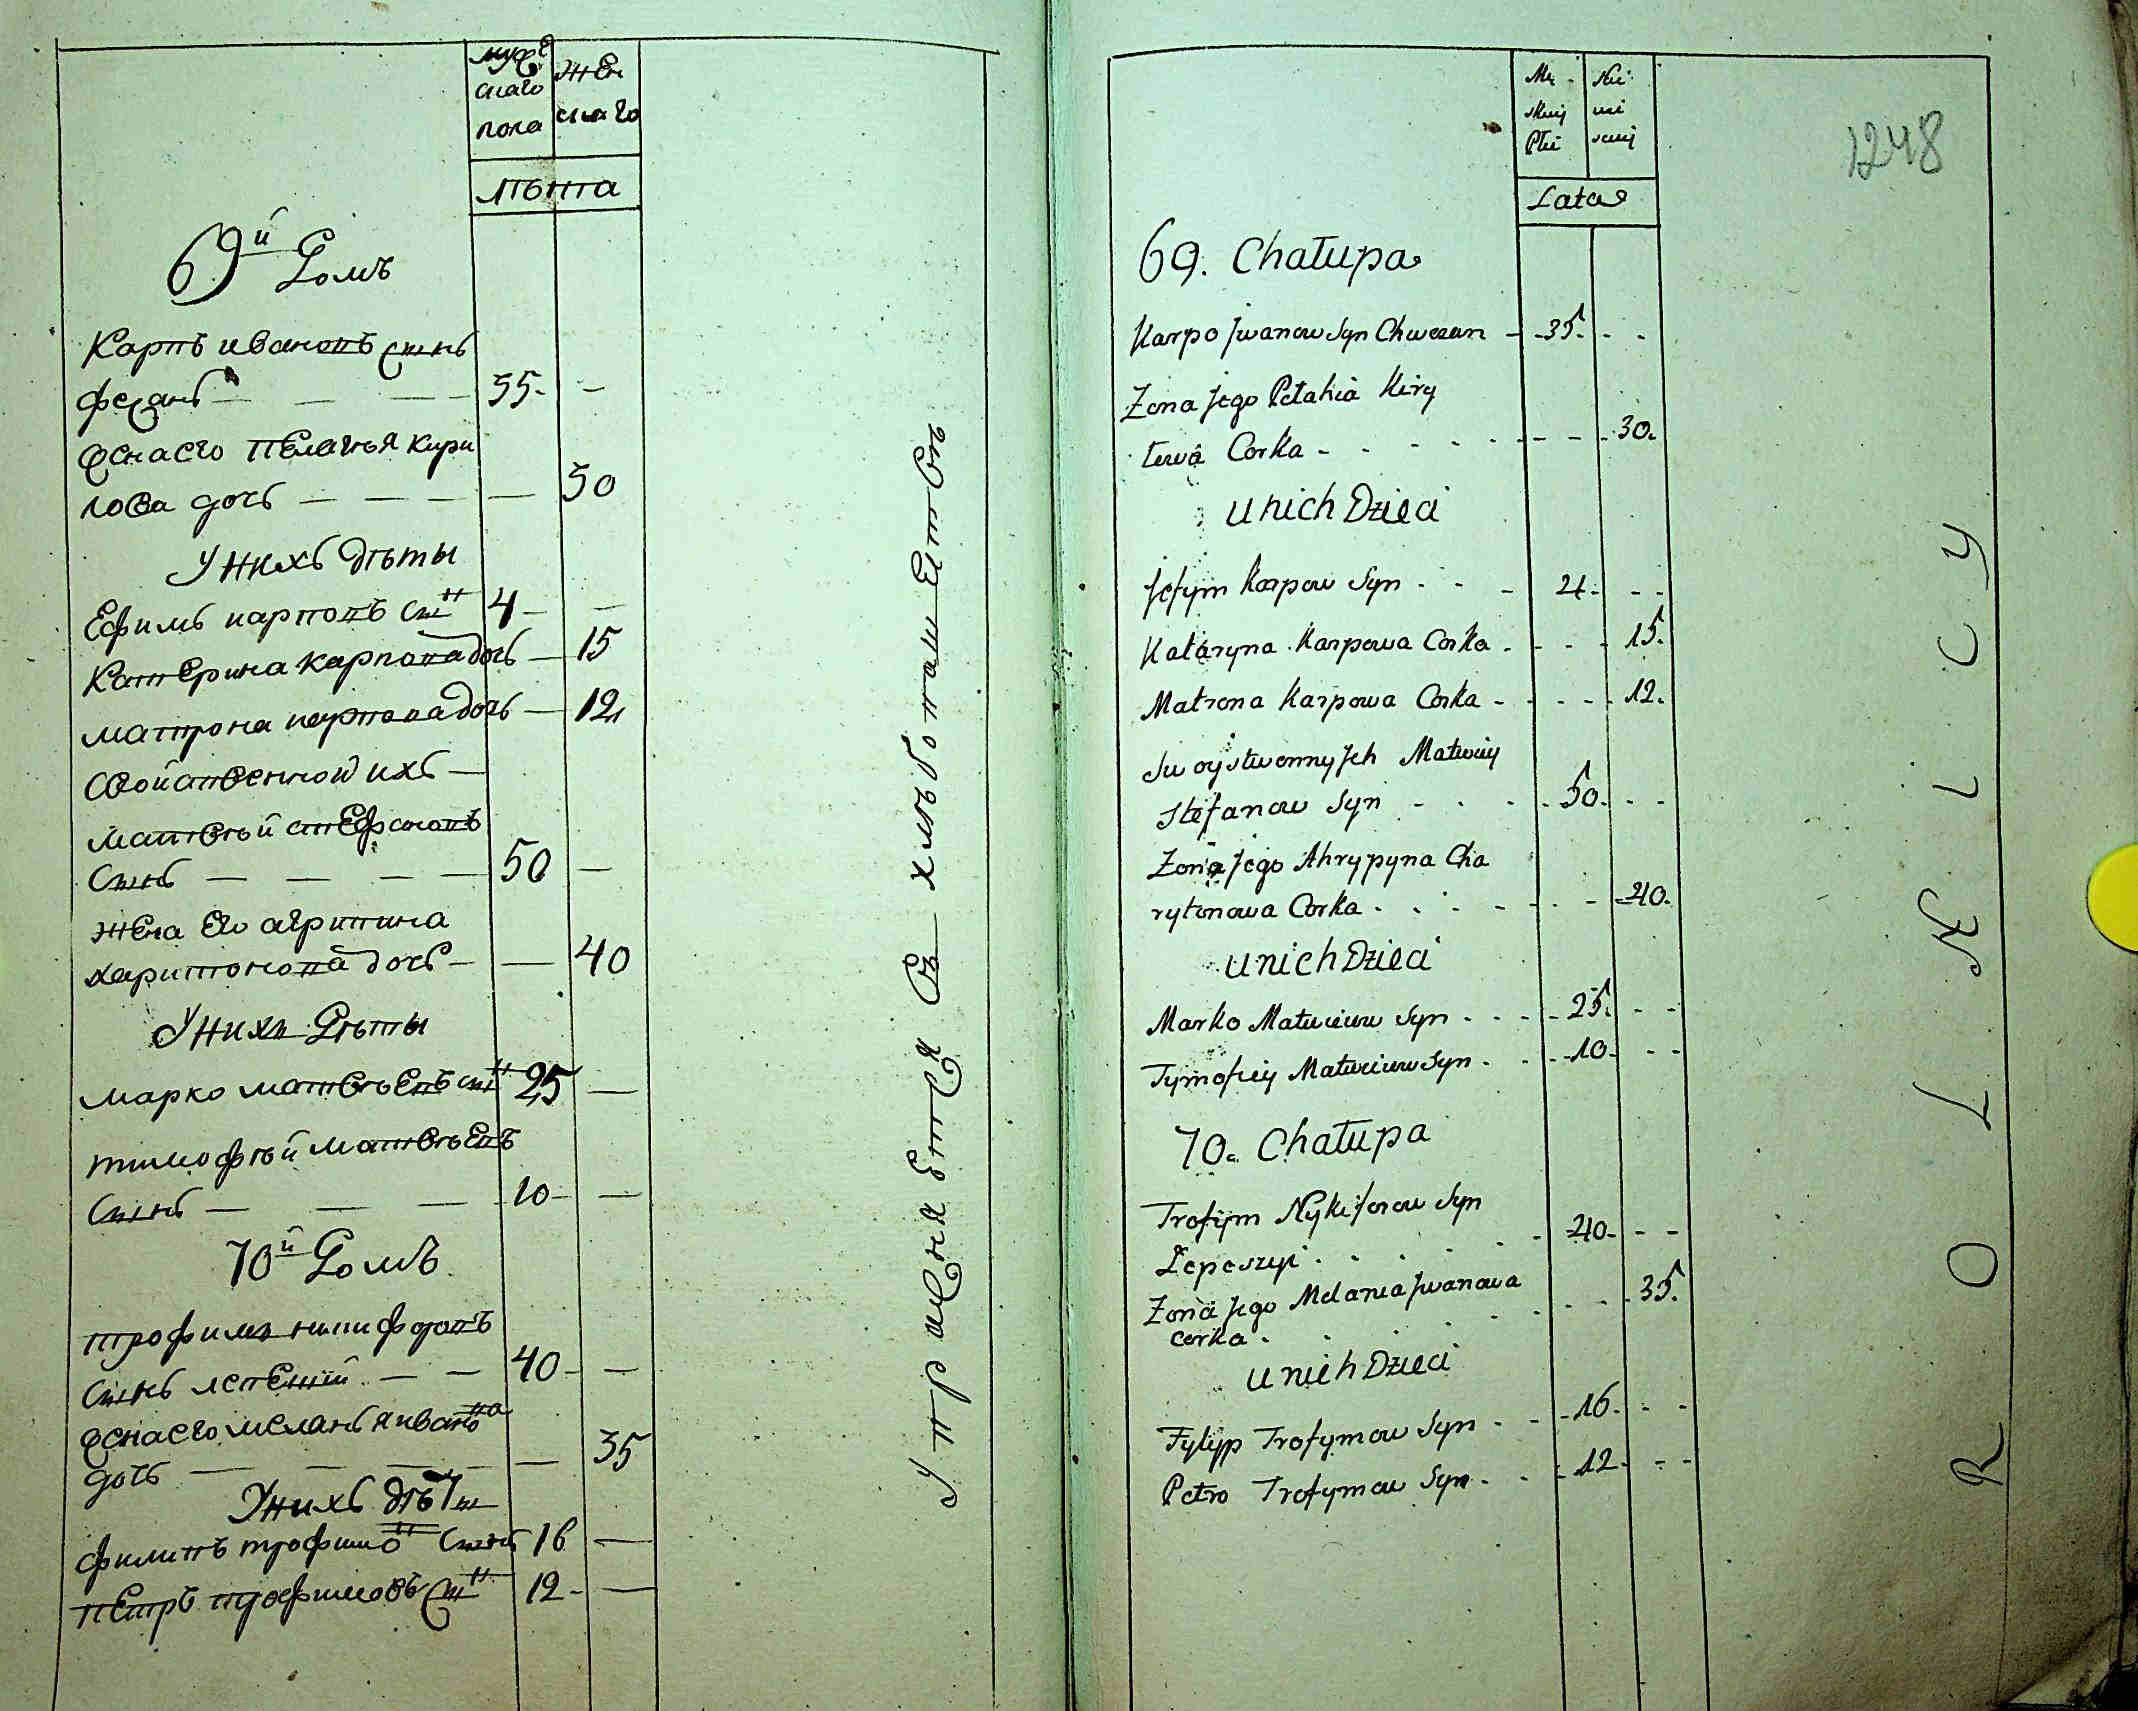 мужескаго пола
женскаго
лѣта
69й Домъ
Карпъ ивановъ сынъ
35. —
жена его пелагья кири
лова дочь — — — — 30
У нихъ дѣты
Ефимъ карповъ сынъ 4 — —
Катерина карпова дочь — 15
матрона карпова дочь — 12
свойственной ихъ —
матвѣй стефановъ
сынъ — — — — 50 —
жена его агрипина
харитонова дочь — — 40
У нихъ Дѣты
марко матвѣевъ сынъ 25 —
тимофѣй матвѣевъ
сынъ — — — 10 — —
70й Домъ
трофимъ никифоровъ
сынъ лепешій — — 40 — —
жена его меланья иванова
дочь — — — — — 35
У нихъ дѣты
филипъ трофимовъ сынъ 16 —
петръ трофимовъ сынъ 12 — —
Упражняется въ хлебопашествѣ
1248
Mę
skiej
Płci
Że
ńs
skiej
Lata
69. Chałupa
Karpo Jwanow Syn - 35. - -
Żona Jego Pelahia Kiry
łowa Corka - - - - - - - 30.
u nich Dzieci
Jefym Karpow Syn - - - 4. - -
Kataryna Karpowa Corka - - - - 15.
Matrona Karpowa Corka - - - - - 12.
Swoystwennyj Jch Matwiey
Stefanow Syn - - - - 50. - -
Żona Jego Ahrypyna Cha
rytonowa Corka - - - - - - 40.
u nich Dzieci
Marko Matwiciow Syn - - - - 25. - -
Tymofiey Matwieiow Syn - - - 10. - -
70. Chałupa
Trofym Nykiforow Syn
Lepeszyi - - - - - 40. - -
Żona Jego Melania Jwanowa
corka - - - - - - - 35.
u nich Dzieci
Fylyp Trofymow Syn - - - 16. - -
Petro Trofymow Syn - - - 12. - -
ROLNICY